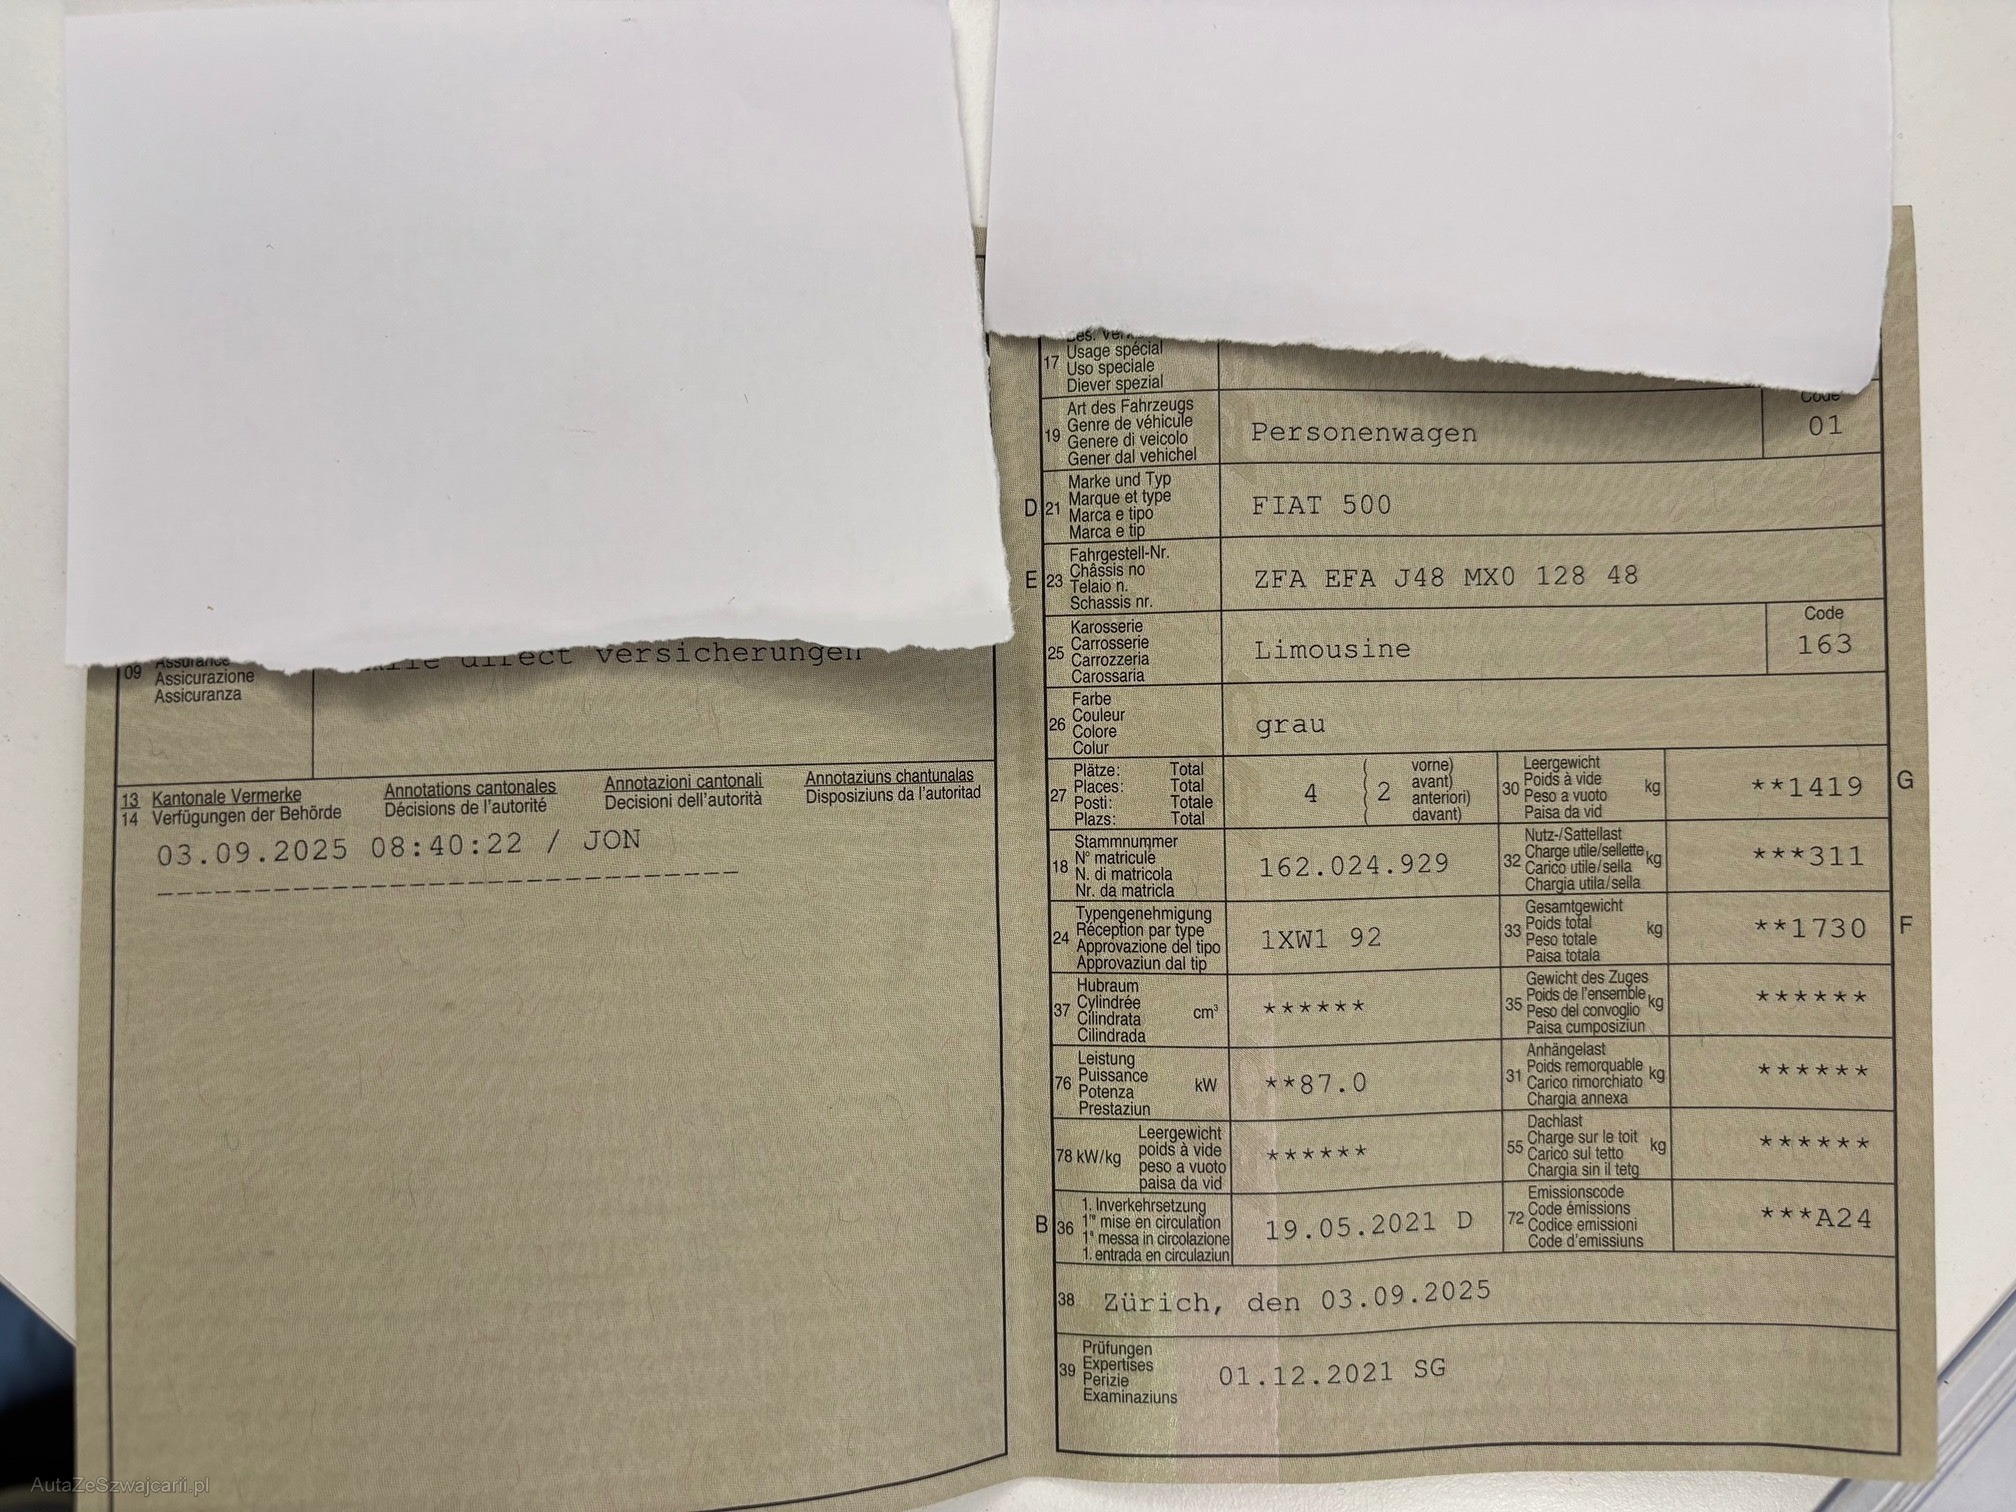 direct versicherungen
09 Assurance
Assicurazione
Assicuranza
13 Kantonale Vermerke Annotations cantonales Annotazioni cantonali Annotaziuns chantunalas
14 Verfügungen der Behörde Décisions de l'autorité Decisioni dell'autorità Disposiziuns da l'autoritad
03.09.2025 08:40:22 / JON
17 Usage spécial
Uso speciale
Diever spezial
19 Art des Fahrzeugs
Genre de véhicule
Genere di veicolo
Gener dal vehichel
Personenwagen
Code
01
D 21 Marke und Typ
Marque et type
Marca e tipo
Marca e tip
FIAT 500
E 23 Fahrgestell-Nr.
Châssis no
Telaio n.
Schassis nr.
ZFA EFA J48 MX0 128 48
25 Karosserie
Carrosserie
Carrozzeria
Carossaria
Limousine
Code
163
26 Farbe
Couleur
Colore
Colur
grau
27 Plätze: Total
Places: Total
Posti: Totale
Plazs: Total
4 ( 2 vorne)
avant)
anteriori)
davant)
30 Leergewicht
Poids à vide
Peso a vuoto
Paisa da vid
kg
**1419 G
18 Stammnummer
N° matricule
N. di matricola
Nr. da matricla
162.024.929
32 Nutz-/Sattellast
Charge utile/sellette
Carico utile/sella
Chargia utila/sella
kg
***311
24 Typengenehmigung
Réception par type
Approvazione del tipo
Approvaziun dal tip
1XW1 92
33 Gesamtgewicht
Poids total
Peso totale
Paisa totala
kg
**1730 F
37 Hubraum
Cylindrée
Cilindrata
Cilindrada
cm³
******
35 Gewicht des Zuges
Poids de l'ensemble
Peso del convoglio
Paisa cumposiziun
kg
******
76 Leistung
Puissance
Potenza
Prestaziun
kW
**87.0
31 Anhängelast
Poids remorquable
Carico rimorchiato
Chargia annexa
kg
******
78 kW/kg Leergewicht
poids à vide
peso a vuoto
paisa da vid
******
55 Dachlast
Charge sur le toit
Carico sul tetto
Chargia sin il tetg
kg
******
B 36 1. Inverkehrsetzung
1re mise en circulation
1a messa in circolazione
1. entrada en circulaziun
19.05.2021 D
72 Emissionscode
Code émissions
Codice emissioni
Code d'emissiuns
***A24
38 Zürich, den 03.09.2025
39 Prüfungen
Expertises
Perizie
Examinaziuns
01.12.2021 SG
AutaZeSzwajcarii.pl